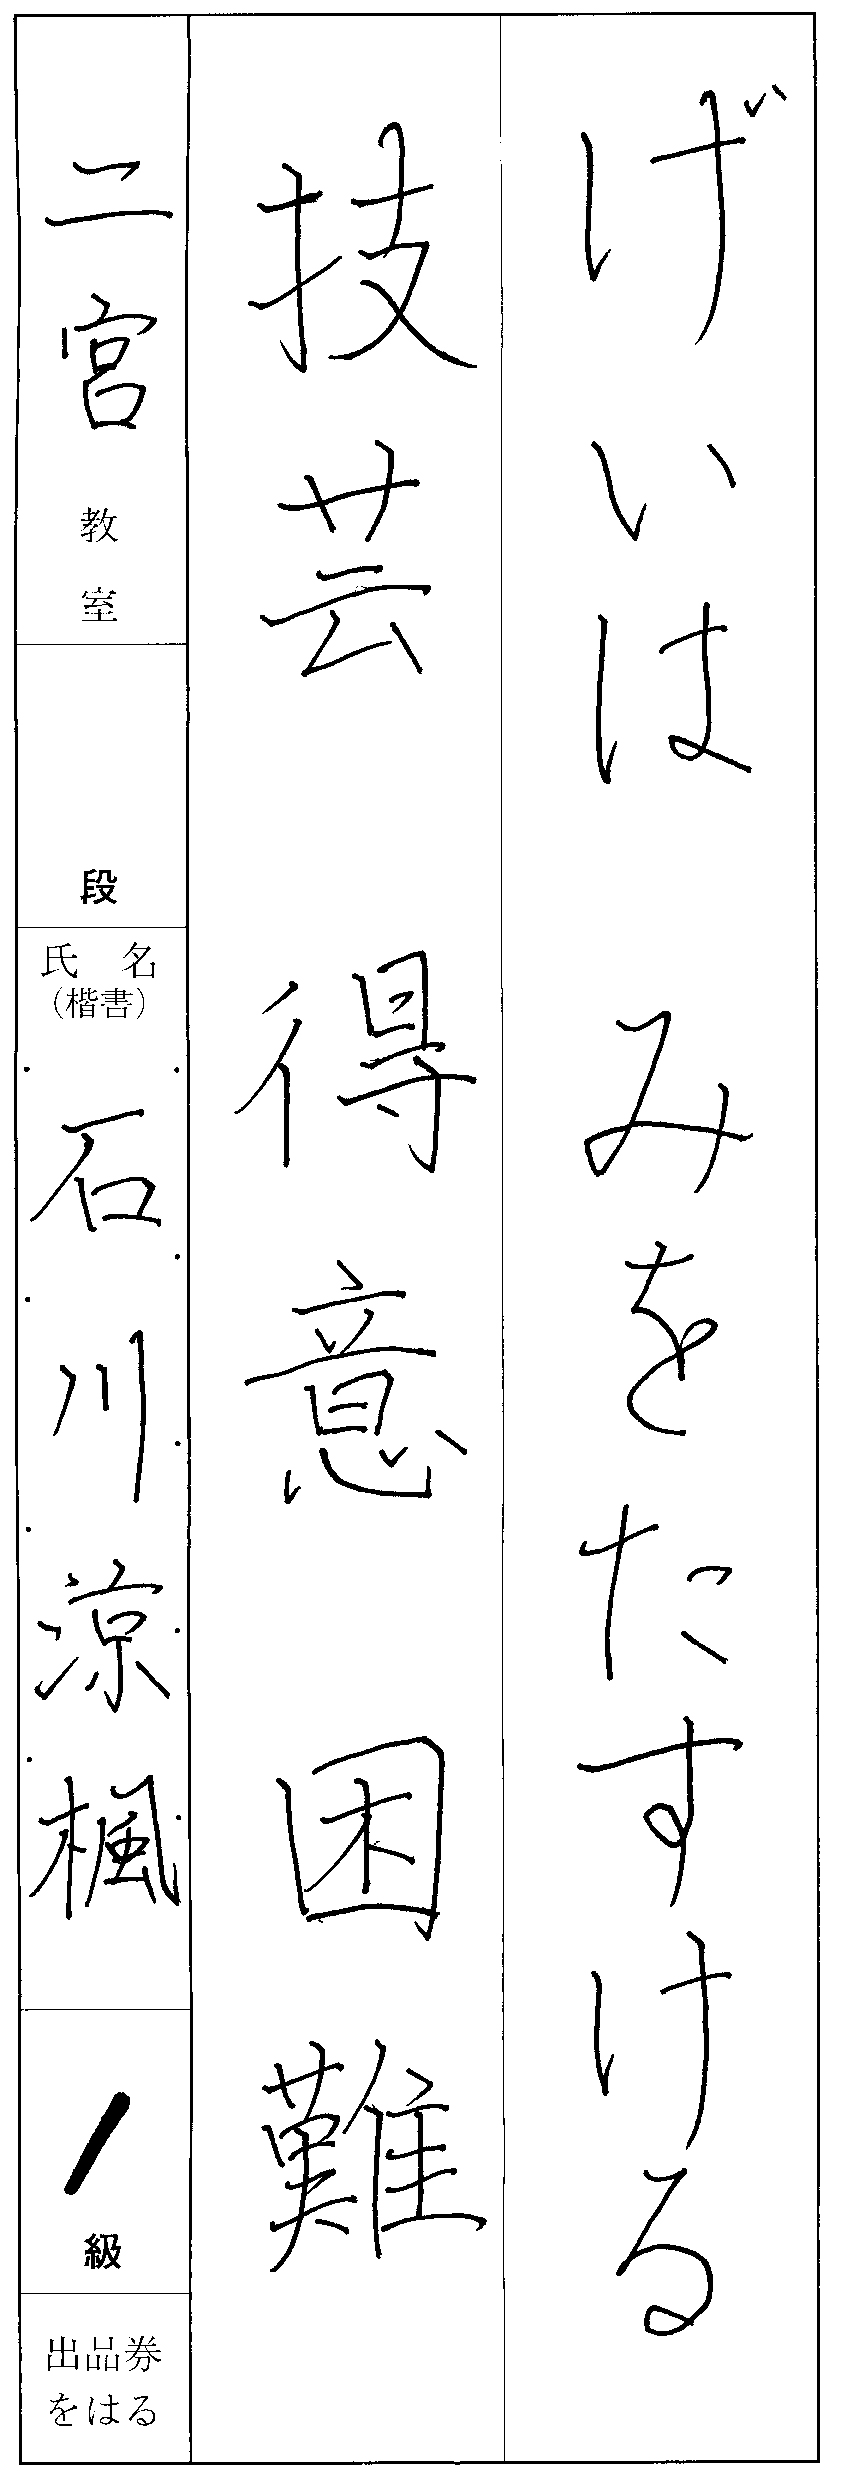 げいは みをたすける
技芸 得意 困難
二宮教室
段
氏名
(楷書)
石川涼楓
1級
出品券
をはる